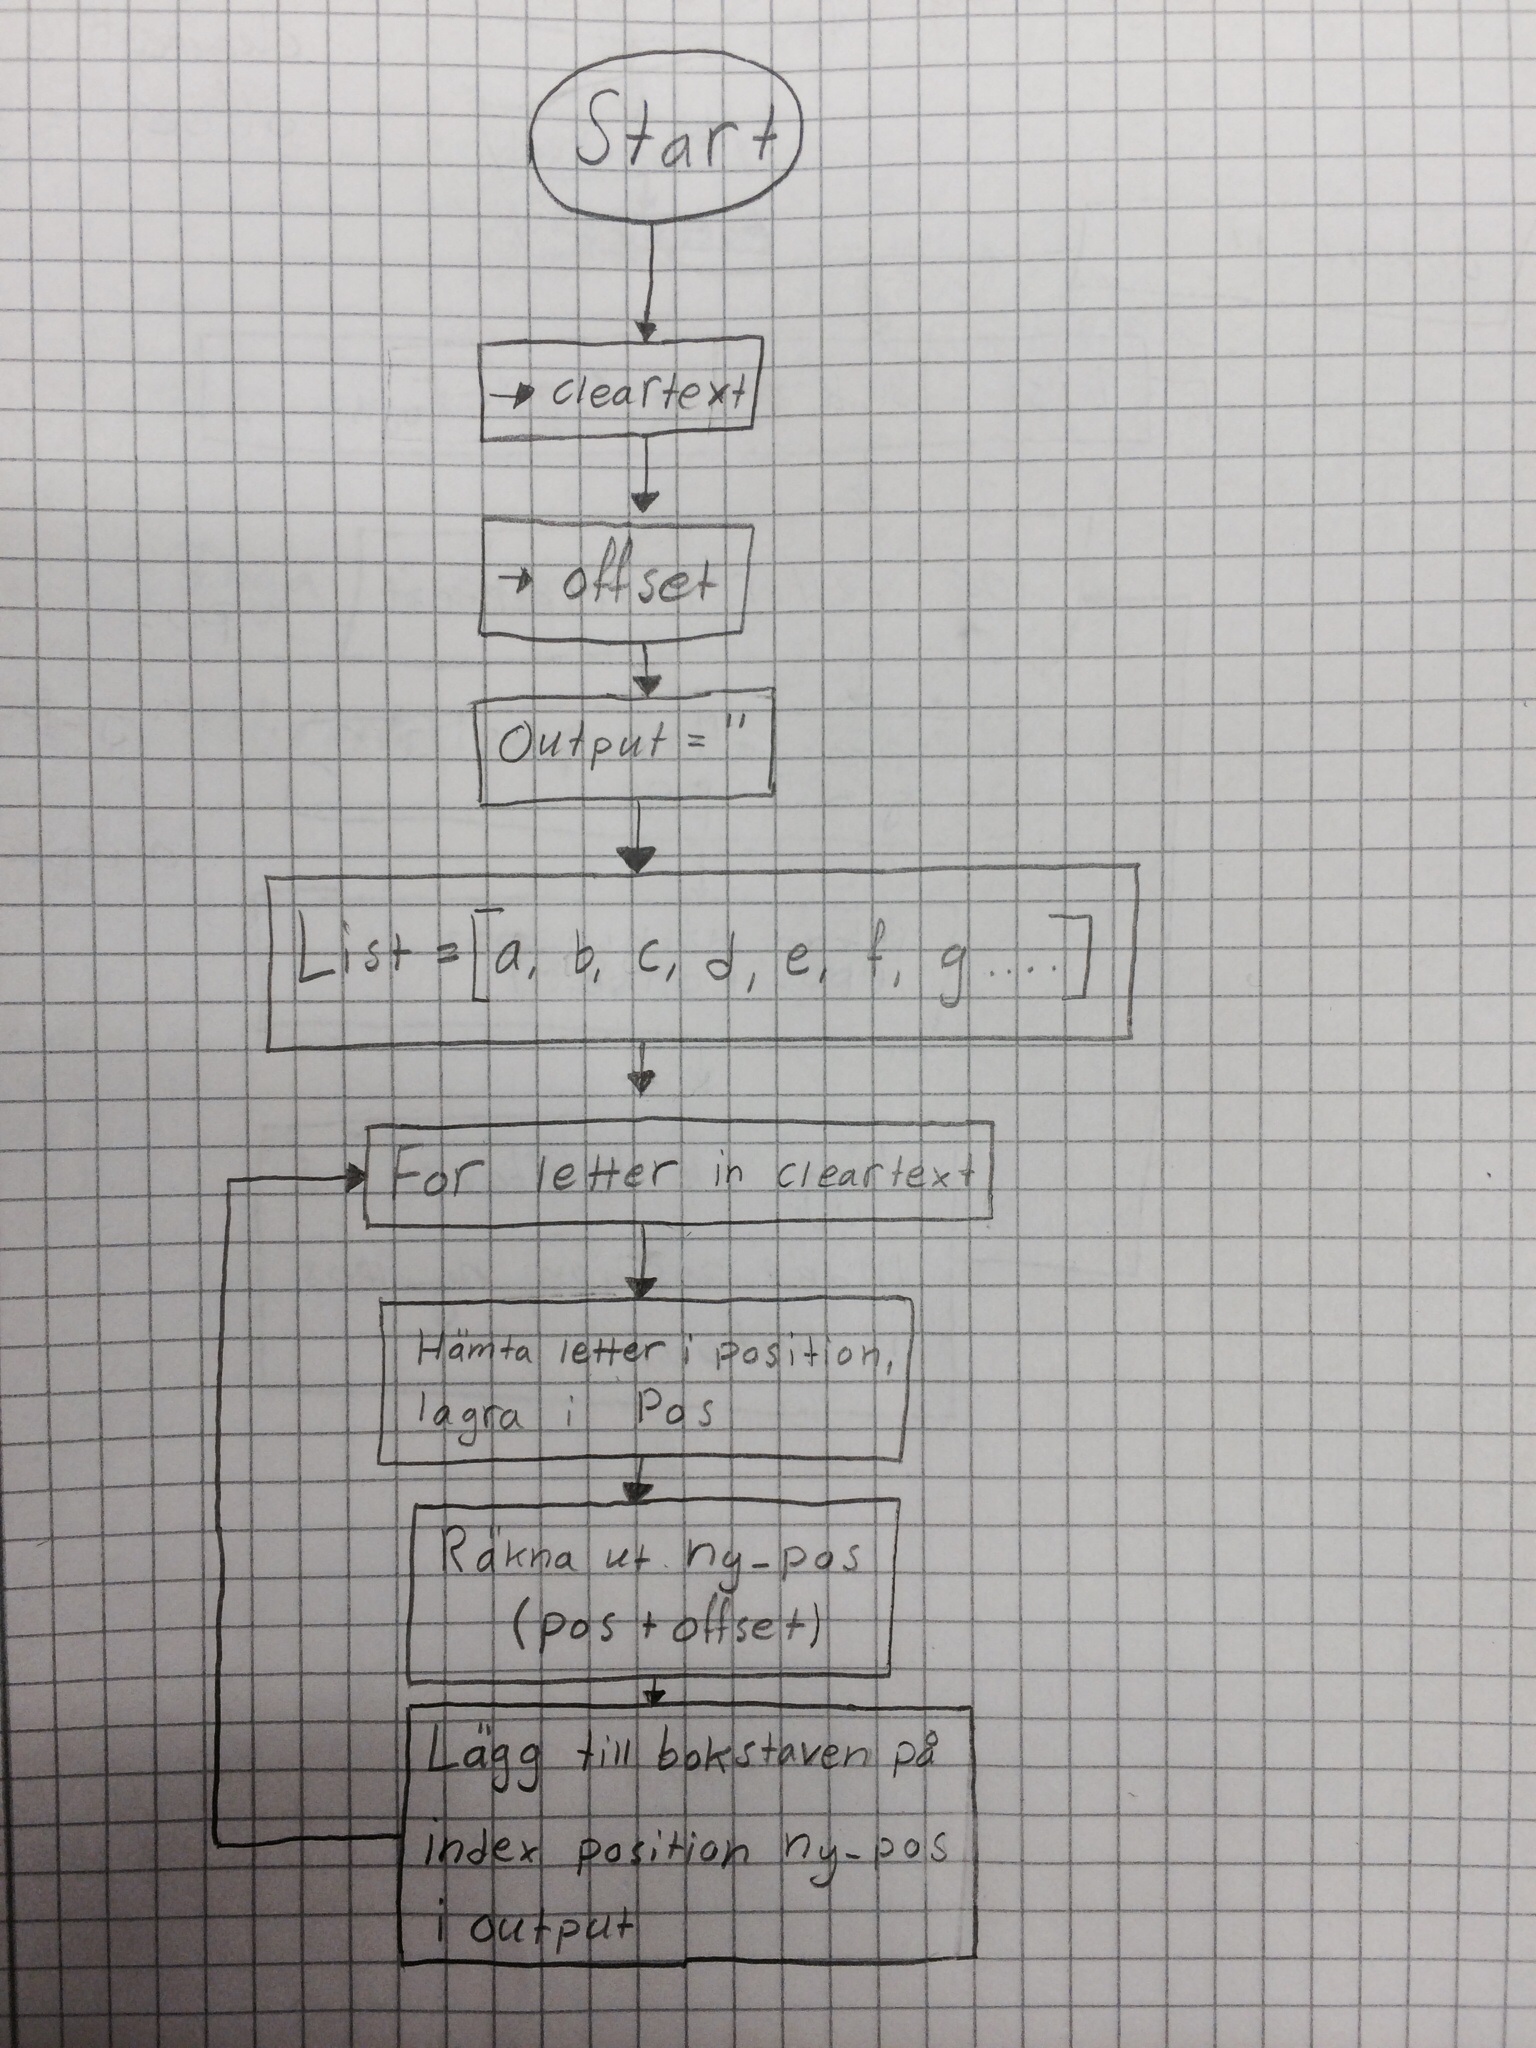 Start
→ cleartext
→ offset
Output = ''
List = [a, b, c, d, e, f, g ....]
For letter in cleartext
Hämta letter i position,
lagra i Pos
Räkna ut ny-pos
(pos + offset)
Lägg till bokstaven på
index position ny-pos
i output